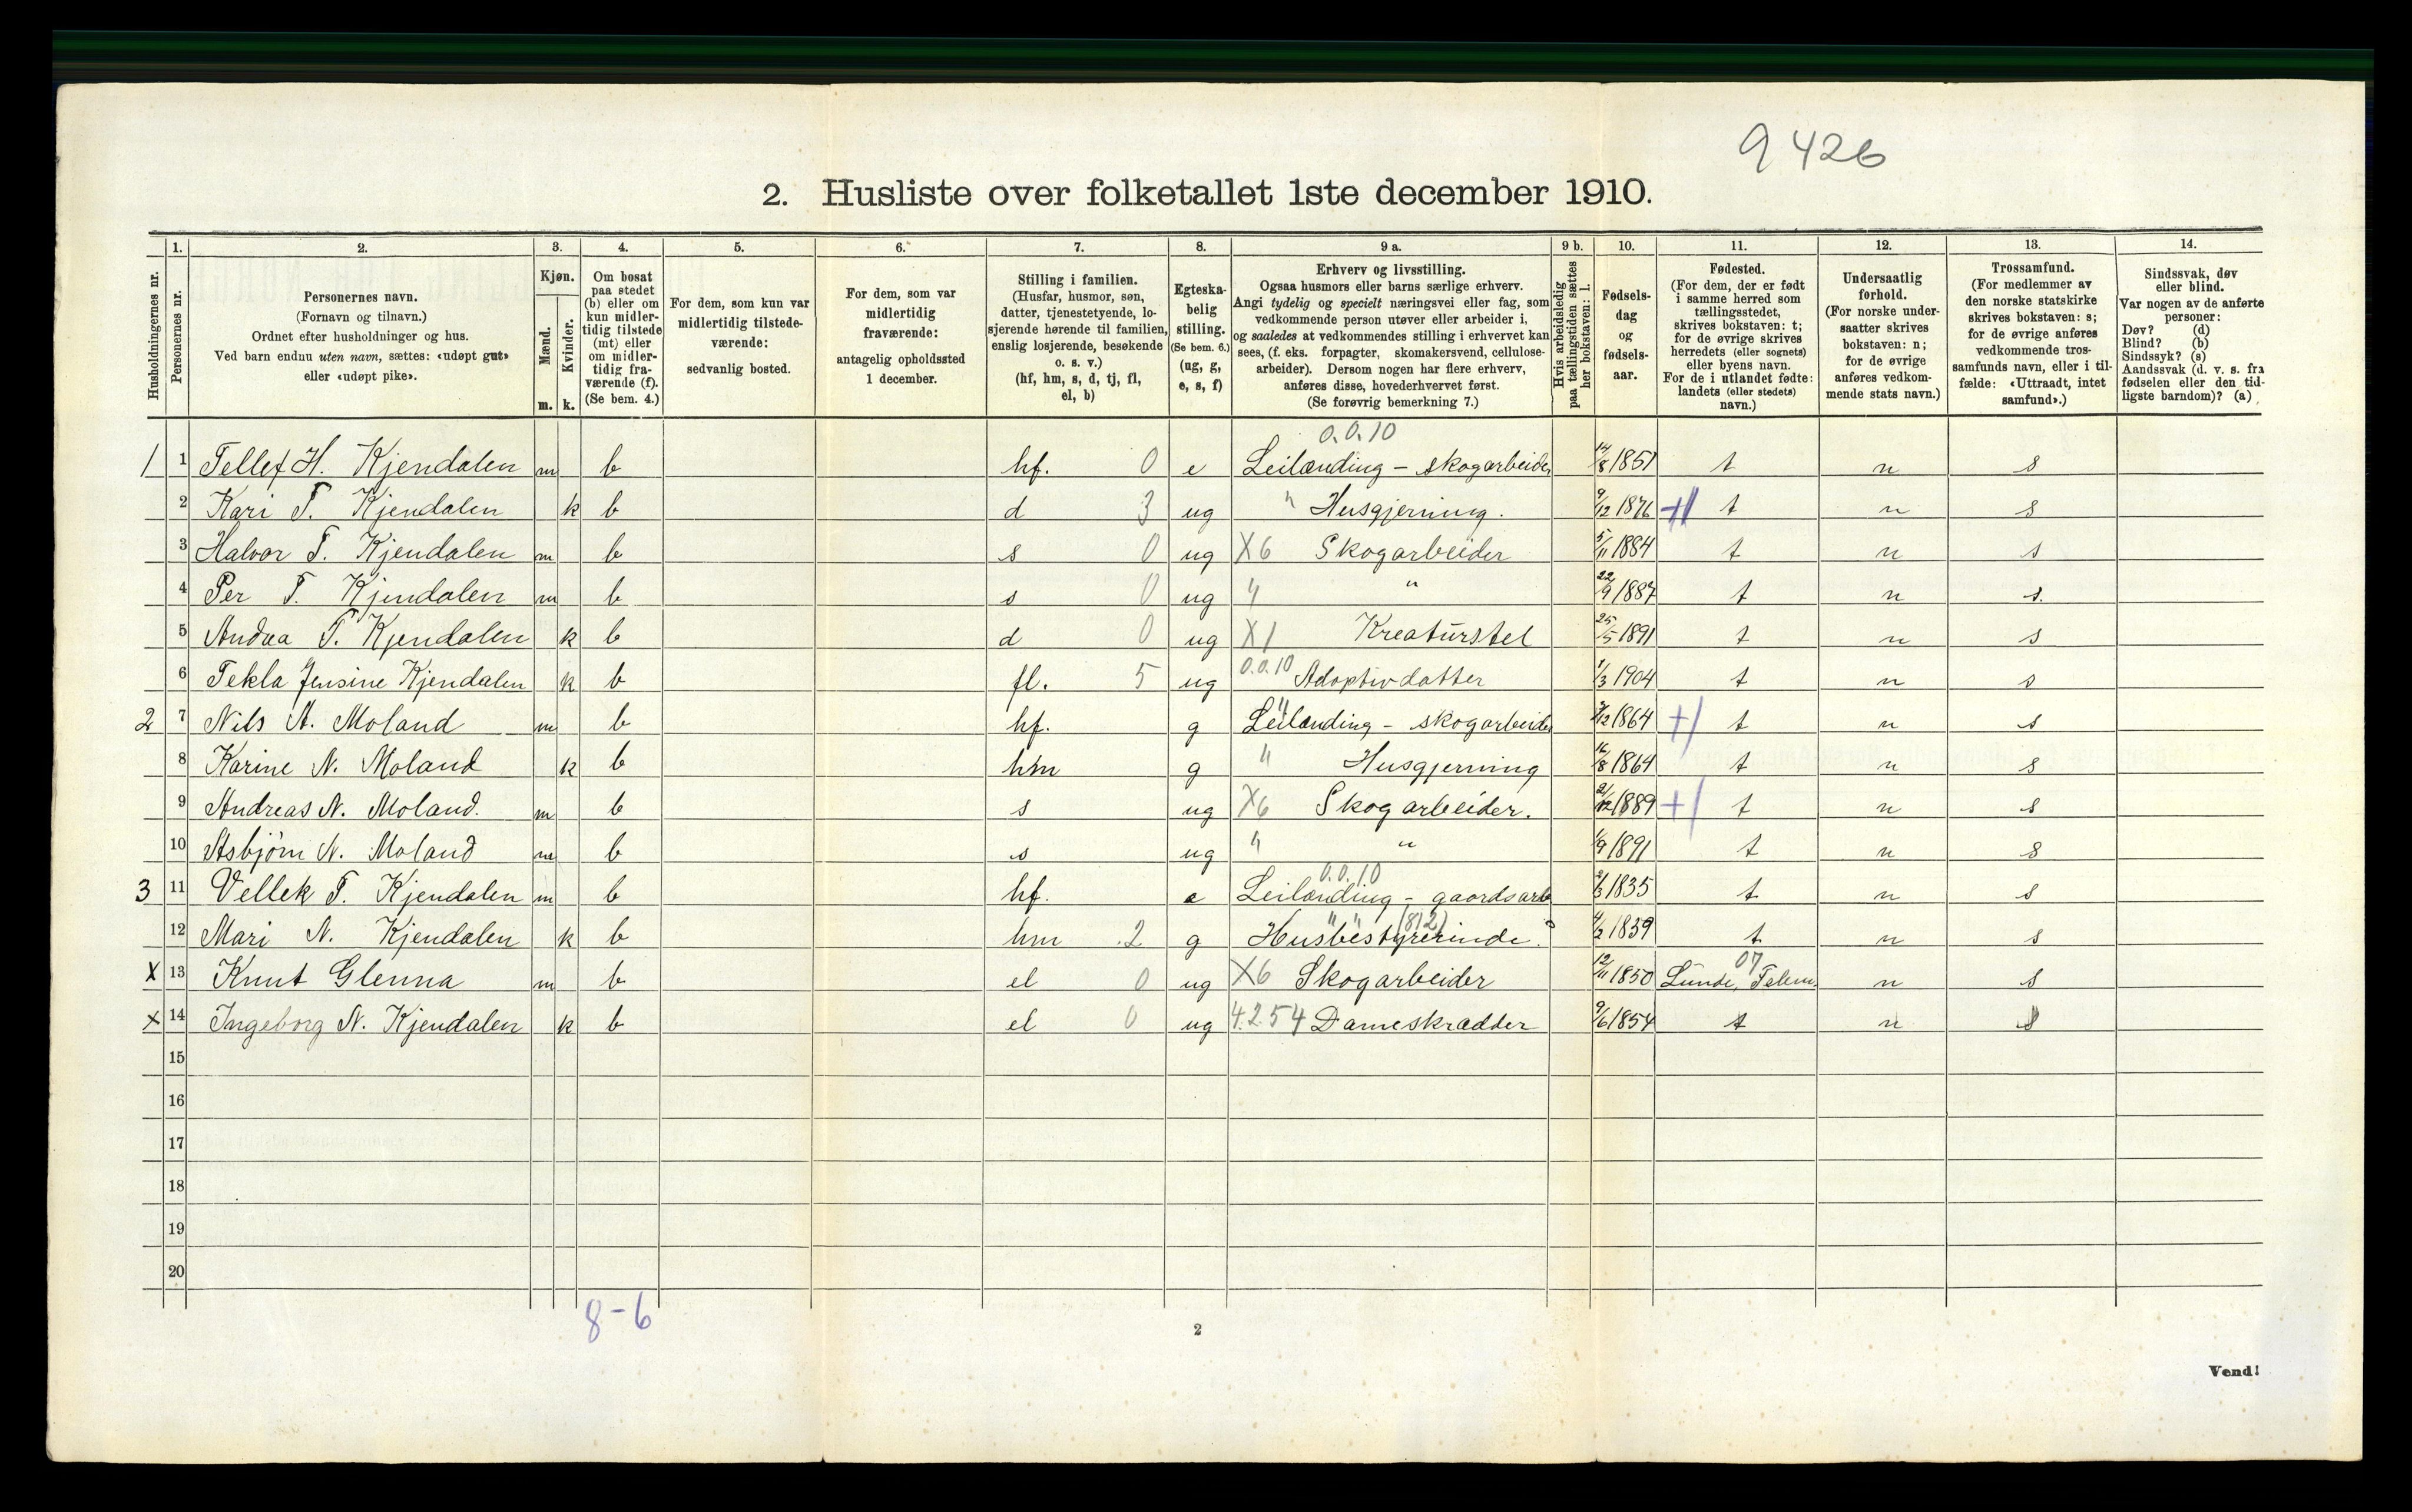 9426
2. Husliste over folketallet 1ste december 1910.
1. 2. 3. 4. 5. 6. 7. 8. 9 a. 9 b. 10. 11. 12. 13. 14.
Husholdningernes nr.
Personernes nr.
Personernes navn.
(Fornavn og tilnavn.)
Ordnet efter husholdninger og hus.
Ved barn endnu uten navn, sættes: «udøpt gut»
eller «udøpt pike».
Kjøn.
Mænd.
Kvinder.
m. k.
Om bosat
paa stedet
(b) eller om
kun midler-
tidig tilstede
(mt) eller
om midler-
tidig fra-
værende (f).
(Se bem. 4.)
For dem, som kun var
midlertidig tilstede-
værende:
sedvanlig bosted.
For dem, som var
midlertidig
fraværende:
antagelig opholdssted
1 december.
Stilling i familien.
(Husfar, husmor, søn,
datter, tjenestetyende, lo-
sjerende hørende til familien,
enslig losjerende, besøkende
o. s. v.)
(hf, hm, s, d, tj, fl,
el, b)
Egteska-
belig
stilling.
(Se bem. 6.)
(ug, g,
e, s, f)
Erhverv og livsstilling.
Ogsaa husmors eller barns særlige erhverv.
Angi tydelig og specielt næringsvei eller fag, som
vedkommende person utøver eller arbeider i,
og saaledes at vedkommendes stilling i erhvervet kan
sees, (f. eks. forpagter, skomakersvend, cellulose-
arbeider). Dersom nogen har flere erhverv,
anføres disse, hovederhvervet først.
(Se forøvrig bemerkning 7.)
Hvis arbeidsledig
paa tællingstiden sættes
her bokstaven: l.
Fødsels-
dag
og
fødsels-
aar.
Fødested.
(For dem, der er født
i samme herred som
tællingsstedet,
skrives bokstaven: t;
for de øvrige skrives
herredets (eller sognets)
eller byens navn.
For de i utlandet fødte:
landets (eller stedets)
navn.)
Undersaatlig
forhold.
(For norske under-
saatter skrives
bokstaven: n;
for de øvrige
anføres vedkom-
mende stats navn.)
Trossamfund.
(For medlemmer av
den norske statskirke
skrives bokstaven: s;
for de øvrige anføres
vedkommende tros-
samfunds navn, eller i til-
fælde: «Uttraadt, intet
samfund».)
Sindssvak, døv
eller blind.
Var nogen av de anførte
personer:
Døv? (d)
Blind? (b)
Sindssyk? (s)
Aandssvak (d. v. s. fra
fødselen eller den tid-
ligste barndom)? (a)
0.0.10
1 1 Tellef H. Kjendalen m b hf. 0 e Leilænding - skogarbeider 14/8 1851 t n s
2 Kari T. Kjendalen k b d 3 ug " Husgjerning. 9/12 1876 t n s
3 Halvor T. Kjendalen m b s 0 ug X6 Skogarbeider 5/11 1884 t n s
4 Per T. Kjendalen m b s 0 ug " " 22/9 1887 t n s.
5 Andrea T. Kjendalen k b d 0 ug X1 Kreaturstel 25/5 1891 t n s
6 Tekla Jensine Kjendalen k b fl. 5 ug 0.0.10 Adoptivdatter 1/3 1904 t n s
2 7 Nils A. Moland m b hf. g " Leilænding - skogarbeider /12 1864 +1 t n s
8 Karine N. Moland k b hm g " Husgjerning 16/8 1864 t n s
9 Andreas N. Moland. m b s ug X6 Skogarbeider. 21/12 1889 +1 t n s
10 Asbjørn N. Moland m b s ug " " 1/9 1891 t n s
0.0.10
3 11 Vellek T. Kjendalen m b hf. Leilænding - gaardsarb 2/3 1835 t n s
12 Mari N. Kjendalen k b hm 2 g " " (812) Husbestyrerinde. 4/2 1839 t n s
X 13 Knut Glenna m b el 0 ug X6 Skogarbeider 12/11 1850 07 Lunde, Telem. n s
X 14 Ingeborg N. Kjendalen k b el 0 ug 4.2.54 Dameskrædder 9/6 1854 t n s
15
16
17
18
19
20
8-6
2
Vend!